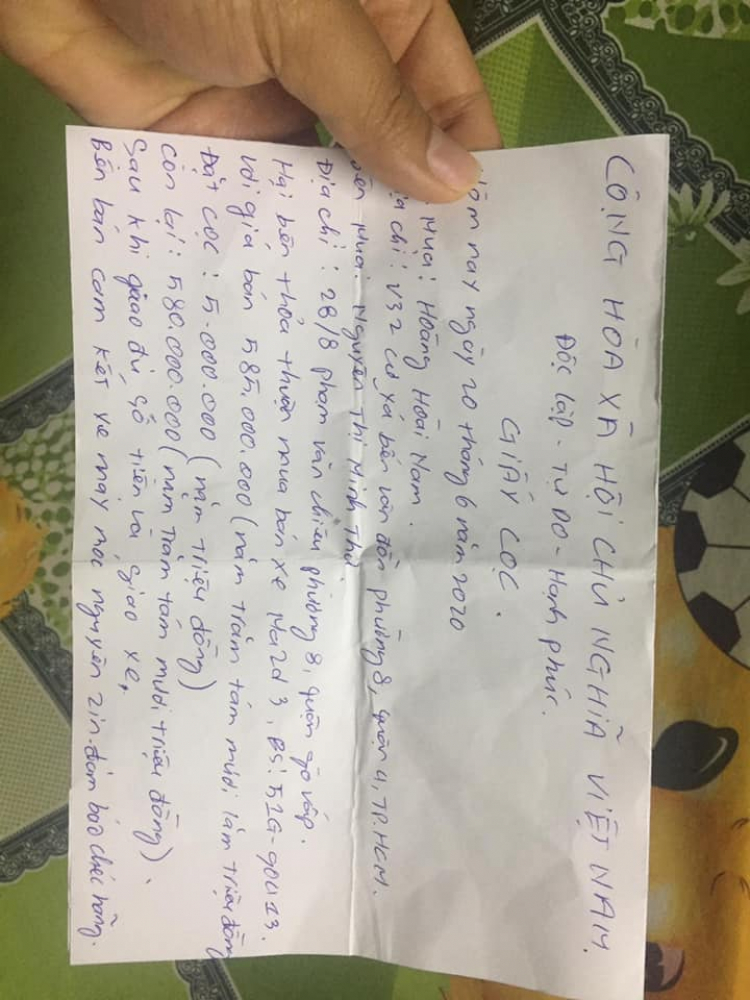 CỘNG HÒA XÃ HỘI CHỦ NGHĨA VIỆT NAM.
Độc lập - Tự Do - Hạnh phúc.
GIẤY CỌC.
Hôm nay ngày 20 tháng 6 năm 2020
Mua: Hoàng Hoài Nam.
ịa chỉ: V32 cư xá bến vân đồn phường 8, quận 4, TP.HCM.
Bên Mua: Nguyễn Thị Minh Thư
Địa chỉ: 28/8 phạm văn chiêu phường 8, quận gò vấp.
Hai bên thỏa thuận mua bán xe Mazd 3, BS: 51G-90413.
Với giá bán 585.000.000 (năm trăm tám mươi lăm triệu đồng
Đặt cọc: 5.000.000 (năm triệu đồng)
Còn lại: 580.000.000 (năm trăm tám mươi triệu đồng).
Sau khi giao đủ số tiền và giao xe.
Bên bán cam kết xe máy móc nguyên zin. đảm bảo chính hãng.